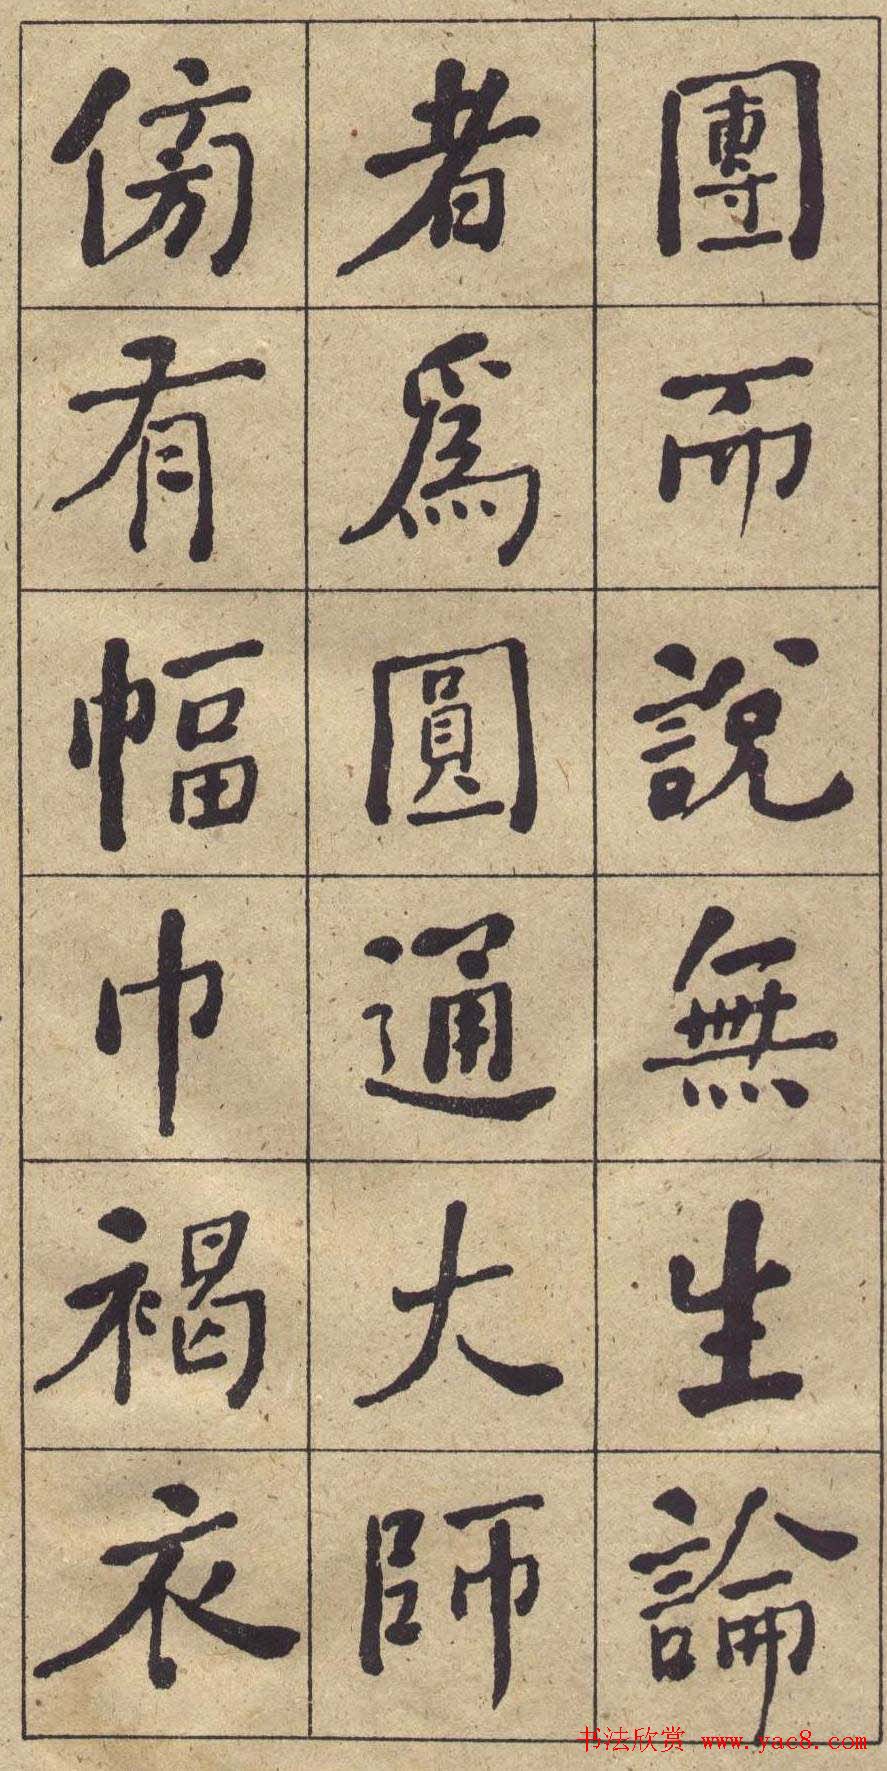 團而說無生論
者為圓通大師
傍有幅巾褐衣
书法欣赏 www.yac8.com